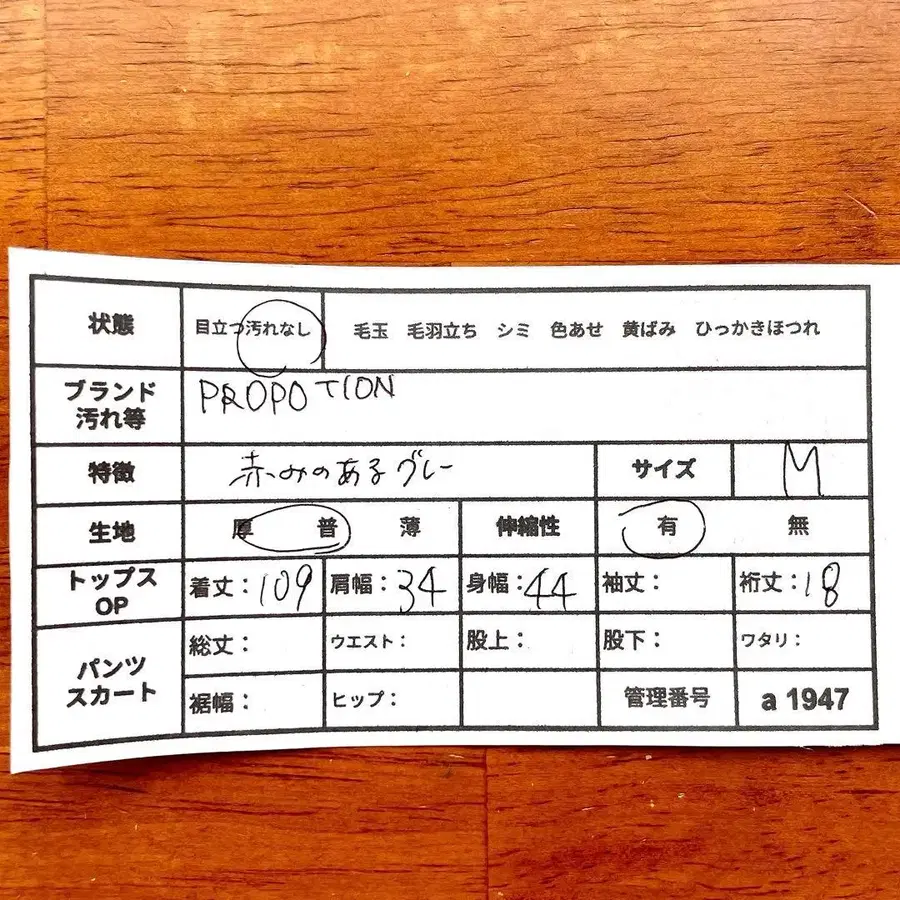 状態 目立つ汚れなし 毛玉 毛羽立ち シミ 色あせ 黄ばみ ひっかきほつれ
ブランド PROPOTION
汚れ等
特徴 赤みのあるグレー サイズ M
生地 厚 普 薄 伸縮性 有 無
トップス
OP 着丈:109 肩幅:34 身幅:44 袖丈: 裄丈:18
パンツ
スカート
総丈: ウエスト: 股上: 股下: ワタリ:
裾幅: ヒップ: 管理番号 a 1947